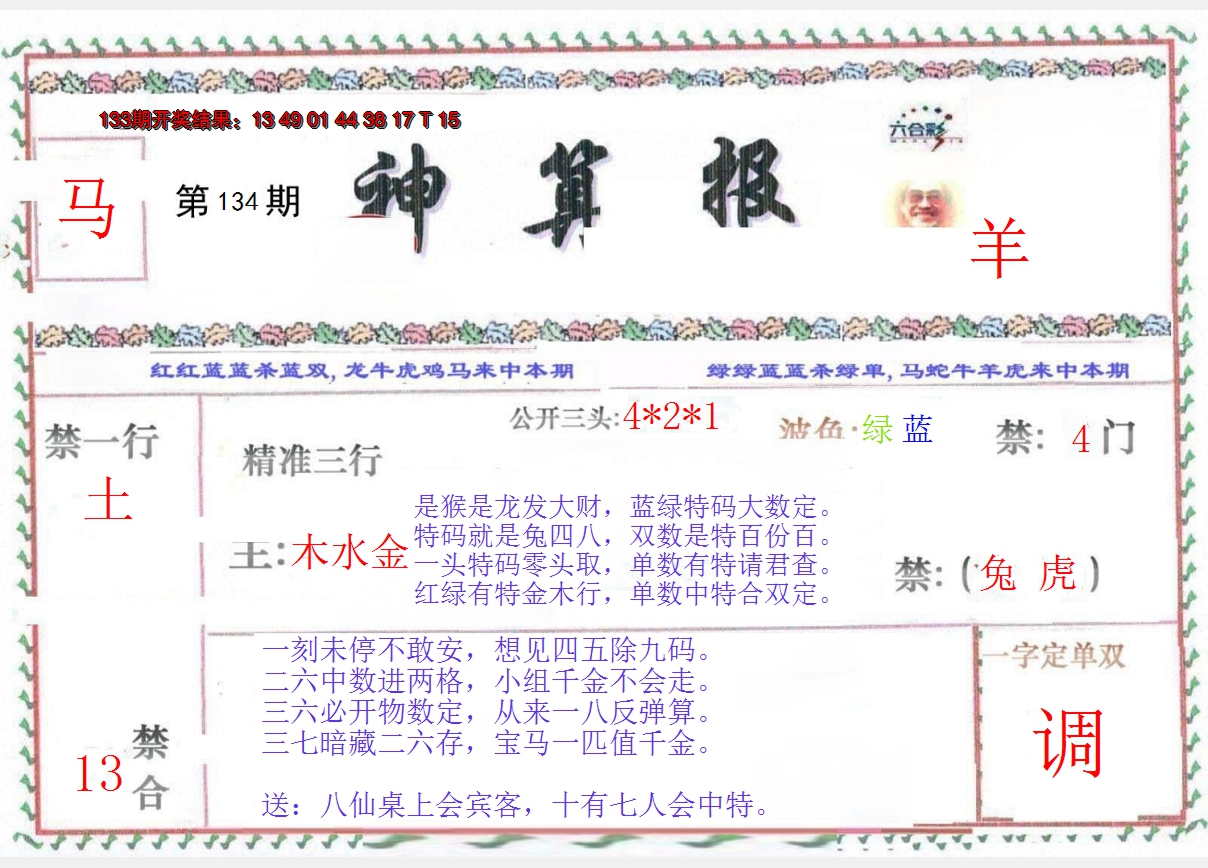 133期开奖结果：13 49 01 44 38 17 T 15
六合彩
马
第134期
神算报
羊
红红蓝蓝杀蓝双,龙牛虎鸡马来中本期
绿绿蓝蓝杀绿单,马蛇牛羊虎来中本期
公开三头:4*2*1
波色·绿 蓝
禁：4门
禁一行
土
精准三行
主:木水金
是猴是龙发大财，蓝绿特码大数定。
特码就是兔四八，双数是特百份百。
一头特码零头取，单数有特请君查。
红绿有特金木行，单数中特合双定。
禁:(兔 虎)
一刻未停不敢安，想见四五除九码。
二六中数进两格，小组千金不会走。
三六必开物数定，从来一八反弹算。
三七暗藏二六存，宝马一匹值千金。
送：八仙桌上会宾客，十有七人会中特。
13
禁合
一字定单双
调